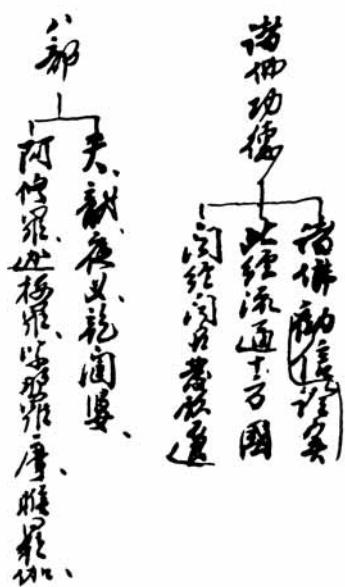 諸佛功德
諸佛勸信證實
此經流通十方國
聞經聞名發願
八部
天、龍、夜叉、乾闥婆、
阿修羅、迦樓羅、緊那羅、摩睺羅伽、